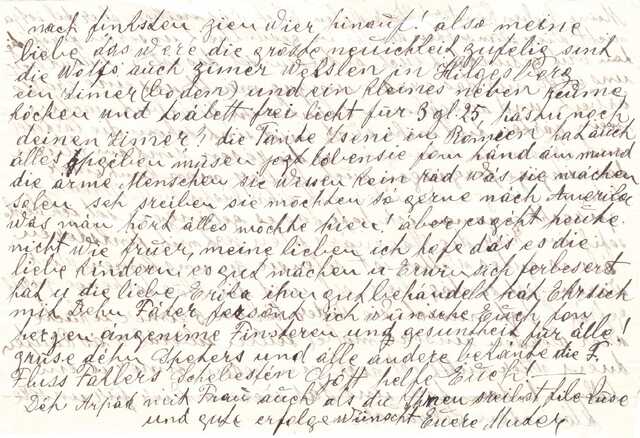 nach finksten zien wier hinauf! also meine
liebe das were die gröste neuichkeit zufelig sind
die Wolfs auch zimer Wekslen in Hilgesberg
ein zimer (boden) und ein kleines neben reume
kochen und toalett frei licht für 3 gl. 25, hast noch
deinen zimer? die Tante Seni in Romeen hat auch
alles müsen jezt loben sie fom hand am mund
die arme Menschen sie wissen kein rad was sie machen
solen seh sreiben sie möchten so gerne nach Amerika
was man hört alles mochte hien! aber es geht heute
nicht wie fruer, meine lieben ich hofe das es die
liebe Kindern so gut machen u Erwin sich ferbesert
hat u die liebe Erika ihm gut behandelt hat Ehr sich
mit Dehn Fater fersönt ich wünsche Euch fon
herzen angenime Finsteren und gesuntheit für alle!
grüse dehn und alle andere bekante die F.
Fluss Fallers Gott helfe Euch!
Deh Arpad mit Frau auch als die Ihnen sreibst file küse!
und gute erfolge wünscht Euere Muder